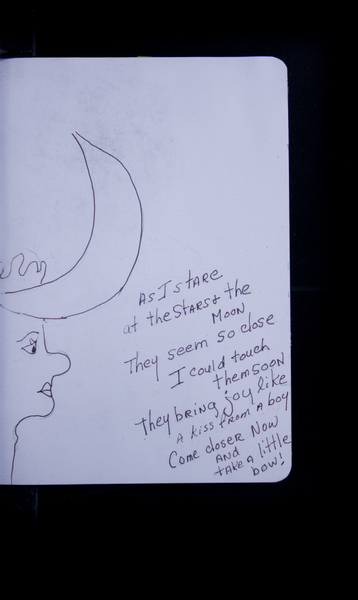 As I stare
at the stars & the
Moon
They seem so close
I could touch
them soon
they bring joy like
a kiss from a boy
Come closer Now
and
take a little
bow!